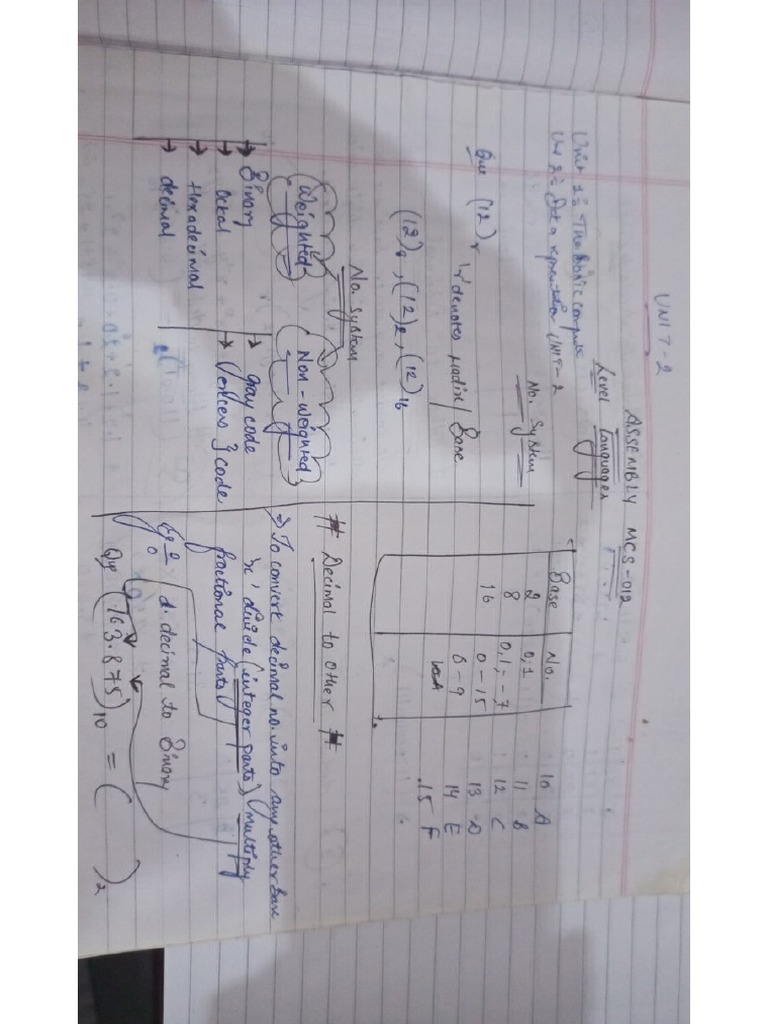 UNIT-2
ASSEMBLY MCS-012
Level Languages
Unit 1: The Basic computer
Unit 2: Data representation UNIT-2
No. System
Que (12)r 'r' denotes radix/Base
(12)8, (12)2, (12)16
No. System
Weighted
Non-Weighted
→ Binary
→ Octal
→ Hexadecimal
→ decimal
→ gray code
→ 3 code
Base No.
2 0,1
8 0,1,--7
16 0-15
0-9
10 A
11 B
12 C
13 D
14 E
15 F
# Decimal to Other #
⇒ To convert decimal no. into any other base
'r' divide (integer parts) multiply
fractional parts
Eg:- d. decimal to Binary
Que (163.875)10 = ( )2